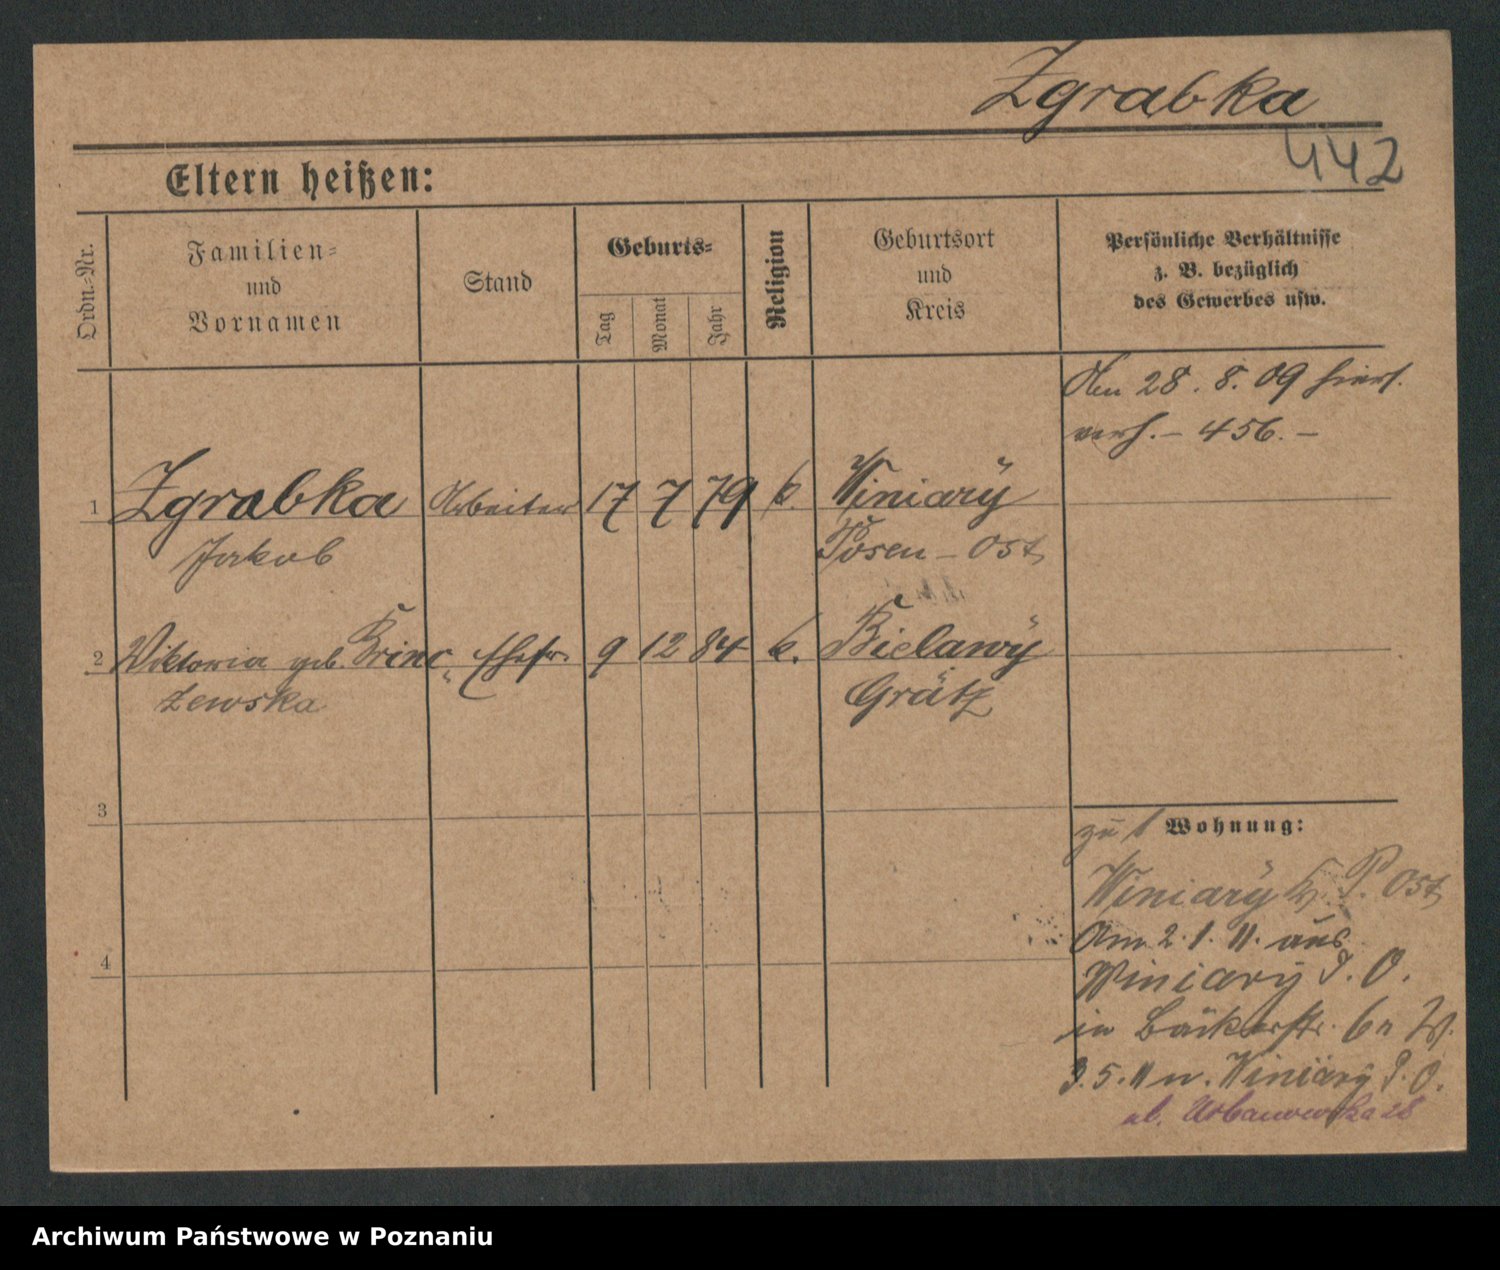 Zgrabka
442
Eltern heißen:
Ordn.-Nr.
Familien-
und
Vornamen
Stand
Geburts-
Tag
Monat
Jahr
Religion
Geburtsort
und
Kreis
Persönliche Verhältnisse
z. B. bezüglich
des Gewerbes usw.
Am 28. 8. 09 hier
verh. – 456. –
1 Zgrabka Arbeiter 17 7 79 k. Winiary
Jakob Posen – Ost
2 Wiktoria geb. Brinc Ehefr. 9 12 84 k. Bielawy
zewska Grätz
3
4
zu 1 Wohnung:
Winiary P. Ost
Am 2. 1. 11. aus
Winiary P. O.
in Bäckerstr. 6a W.
3. 5. 11 n. Winiary P. O.
ul. Urbanowska 28
Archiwum Państwowe w Poznaniu